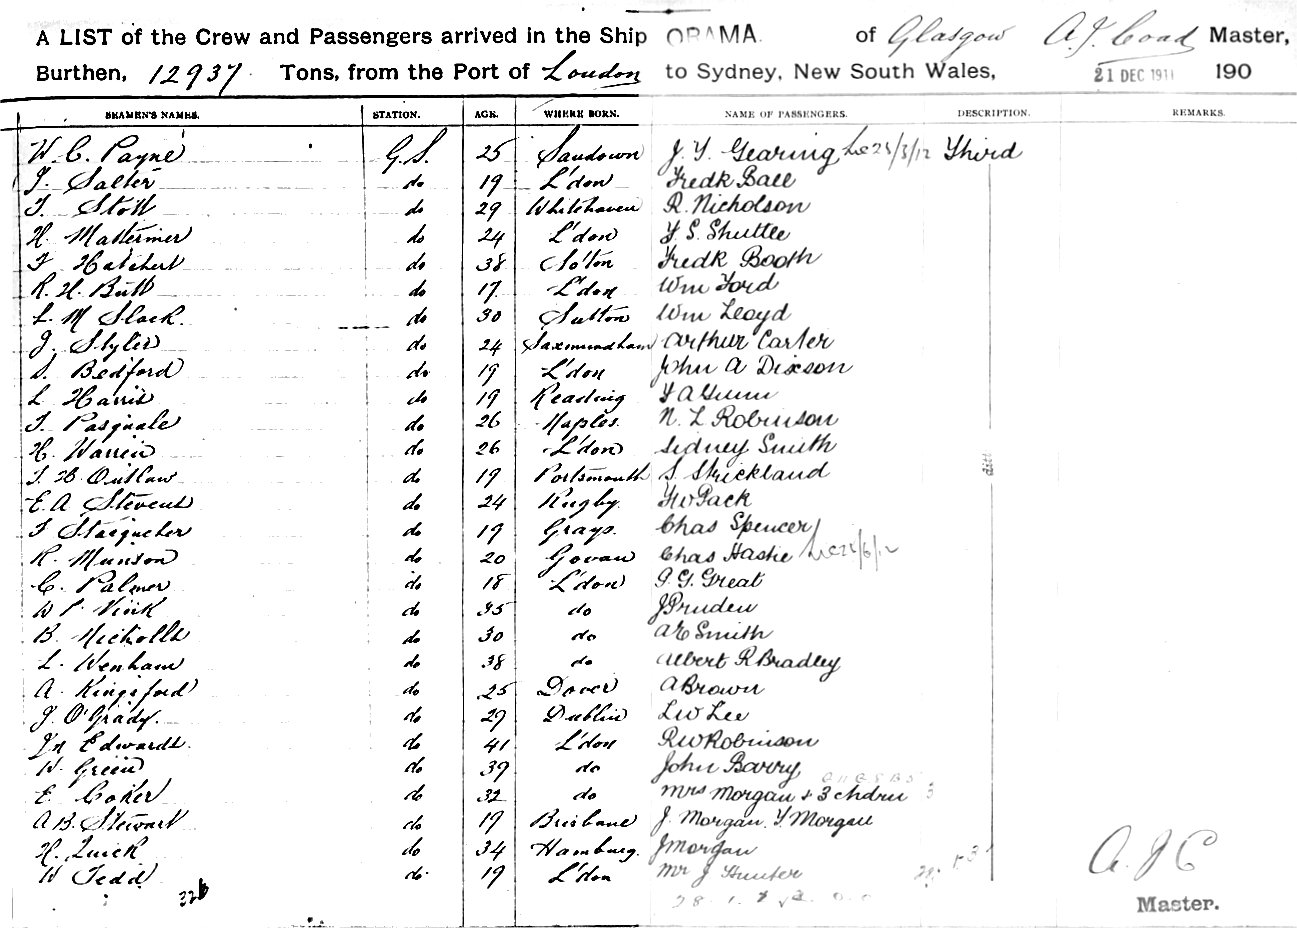 A LIST of the Crew and Passengers arrived in the Ship ORAMA. of Glasgow A. J. Coad Master,
Burthen, 12937 Tons, from the Port of London to Sydney, New South Wales, 21 DEC 1911 190
SEAMEN'S NAMES. STATION. AGE. WHERE BORN. NAME OF PASSENGERS. DESCRIPTION. REMARKS.
W. C. Payne G.S. 25 Sandown J. Y. Gearing 25/3/12 Third
T. Salter do 19 L'don Fredk Ball
T. Stott do 29 Whitehaven R. Nicholson
H. Mattermer do 24 L'don F. S. Shuttle
F Hatchert do 38 So'ton Fredk Booth
R. H. Butt do 17 L'don Wm Ford
L. M Slack. do 30 Sutton Wm Lloyd
J. Slyler do 24 Saxmundham Arthur Carter
S. Bedford do 19 L'don John A Dixson
L Harris do 19 Reading F A Gunn
T. Pasquale do 26 Naples. N. L Robinson
H. Warren do 26 L'don Sidney Smith
T. H Outlaw do 19 Portsmouth S. Strickland ditto
E. A Stevens do 24 Rugby. F W Pack
F do 19 Grays. Chas Spencer
R. Munson do 20 Govan Chas Hastie
C. Palmer do 18 L'don P. G. Great
W P. Vink do 35 do J Pruden
B. Nickolls do 30 do A E Smith
L. Wenham do 38 do Albert R Bradley
A. Kingsford do 25 Dover A Brown
J. O'Grady. do 29 Dublin L W Lee
Jn Edwards. do 41 L'don R W Robinson
W. Green do 39 do John Barry
E. Coker do 32 do Mrs Morgan & 3 chdrn 3
A B. Stewart do 19 Brisbane J. Morgan. T. Morgan
H. Quick do 34 Hamburg. J Morgan
W Tedd do 19 L'don Mr J Hunter
A. J C
Master.